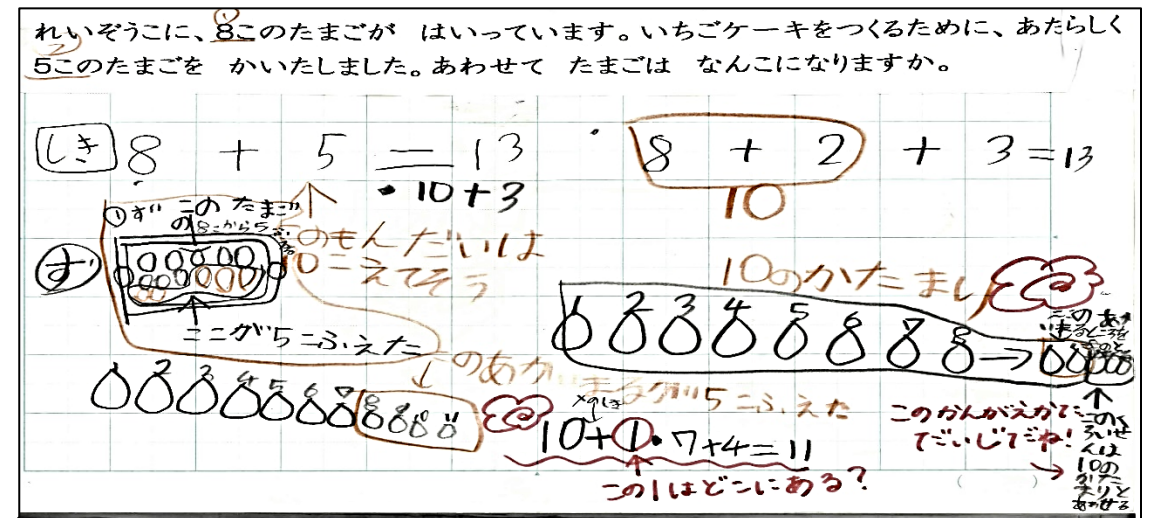 れいぞうこに、8このたまごが はいっています。いちごケーキをつくるために、あたらしく
5このたまごを かいたしました。あわせて たまごは なんこになりますか。
1
2
しき 8 + 5 = 13
・10+3
8 + 2 + 3=13
10
①ず このたまご
の8こから5
このもんだいは
10こえてそう
ず
ここが5こふえた
10のかたまり
1 2 3 4 5 6 7 8
このあかいまるが5こふえた
1 2 3 4 5 6 7 8 9 10 11
10+①・7+4=11
この1はどこにある?
このかんがえかた
だいじだね!
このくろいせんは10のかたまりとあわせる
( )